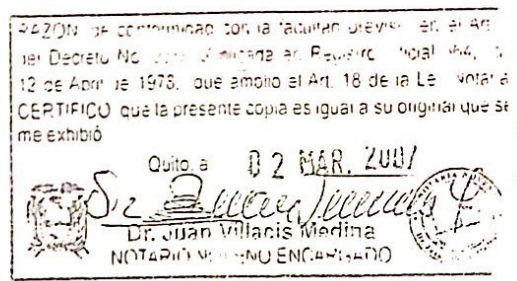 RAZON: de conformidad con la facultad prevista en el Art
del Decreto No. publicada en Registro Oficial 564,
12 de Abril de 1978, que amplio el Art. 18 de la Ley Notarial
CERTIFICO que la presente copia es igual a su original que se
me exhibió
Quito, a 02 MAR. 2007
Dr. Juan Villacis Medina
NOTARIO NOVENO ENCARGADO